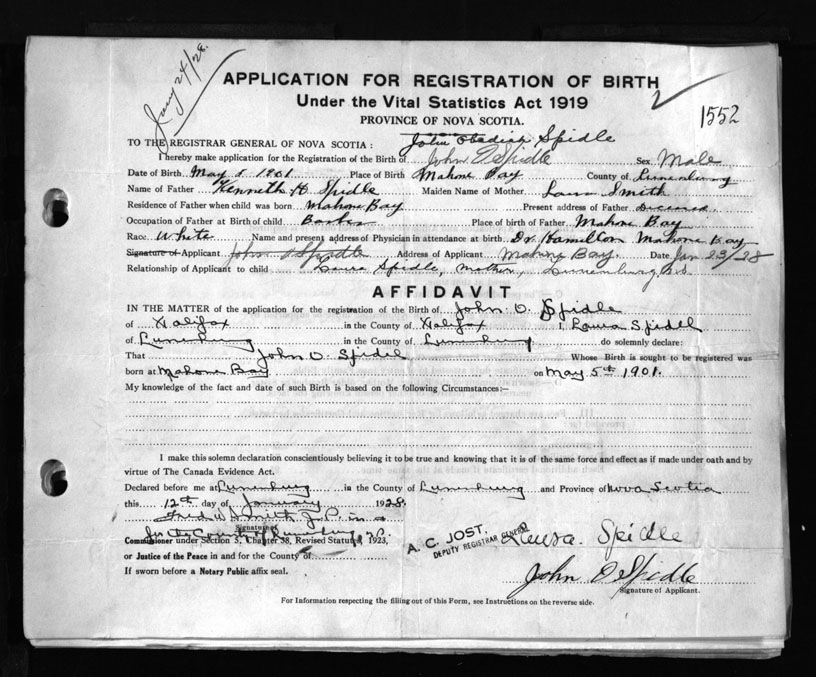 Jany 24/28.
APPLICATION FOR REGISTRATION OF BIRTH
Under the Vital Statistics Act 1919
1552
PROVINCE OF NOVA SCOTIA.
John Obediah Spidle
TO THE REGISTRAR GENERAL OF NOVA SCOTIA :
I hereby make application for the Registration of the Birth of John O Spidle Sex Male
Date of Birth May 5 1901 Place of Birth Mahone Bay County of Lunenburg
Name of Father Kenneth H Spidle Maiden Name of Mother Laura Smith
Residence of Father when child was born Mahone Bay Present address of Father Deceased
Occupation of Father at Birth of child Place of birth of Father Mahone Bay
Race White Name and present address of Physician in attendance at birth Dr. Hamilton Mahone Bay
Signature of Applicant John O Spidle Address of Applicant Mahone Bay. Date Jan 23/28
Relationship of Applicant to child Laura Spidle, Mother, Lunenburg N.S.
AFFIDAVIT
IN THE MATTER of the application for the registration of the Birth of John O. Spidle
of Halifax in the County of Halifax I, Laura Spidle
of Lunenburg in the County of Lunenburg do solemnly declare:
That John O. Spidle Whose Birth is sought to be registered was
born at Mahone Bay on May 5th 1901.
My knowledge of the fact and date of such Birth is based on the following Circumstances:—
I make this solemn declaration conscientiously believing it to be true and knowing that it is of the same force and effect as if made under oath and by
virtue of The Canada Evidence Act.
Declared before me at Lunenburg in the County of Lunenburg and Province of Nova Scotia
this 12th day of January 1928
Fred W Smith J.P. in &
Signature of
for the County of Lunenburg
Commissioner under Section 3, Chapter 38, Revised Statutes, 1923,
or Justice of the Peace in and for the County of
If sworn before a Notary Public affix seal.
A. C. JOST.
DEPUTY REGISTRAR GENERAL
Laura Spidle
John O Spidle
Signature of Applicant.
For Information respecting the filling out of this Form, see Instructions on the reverse side.